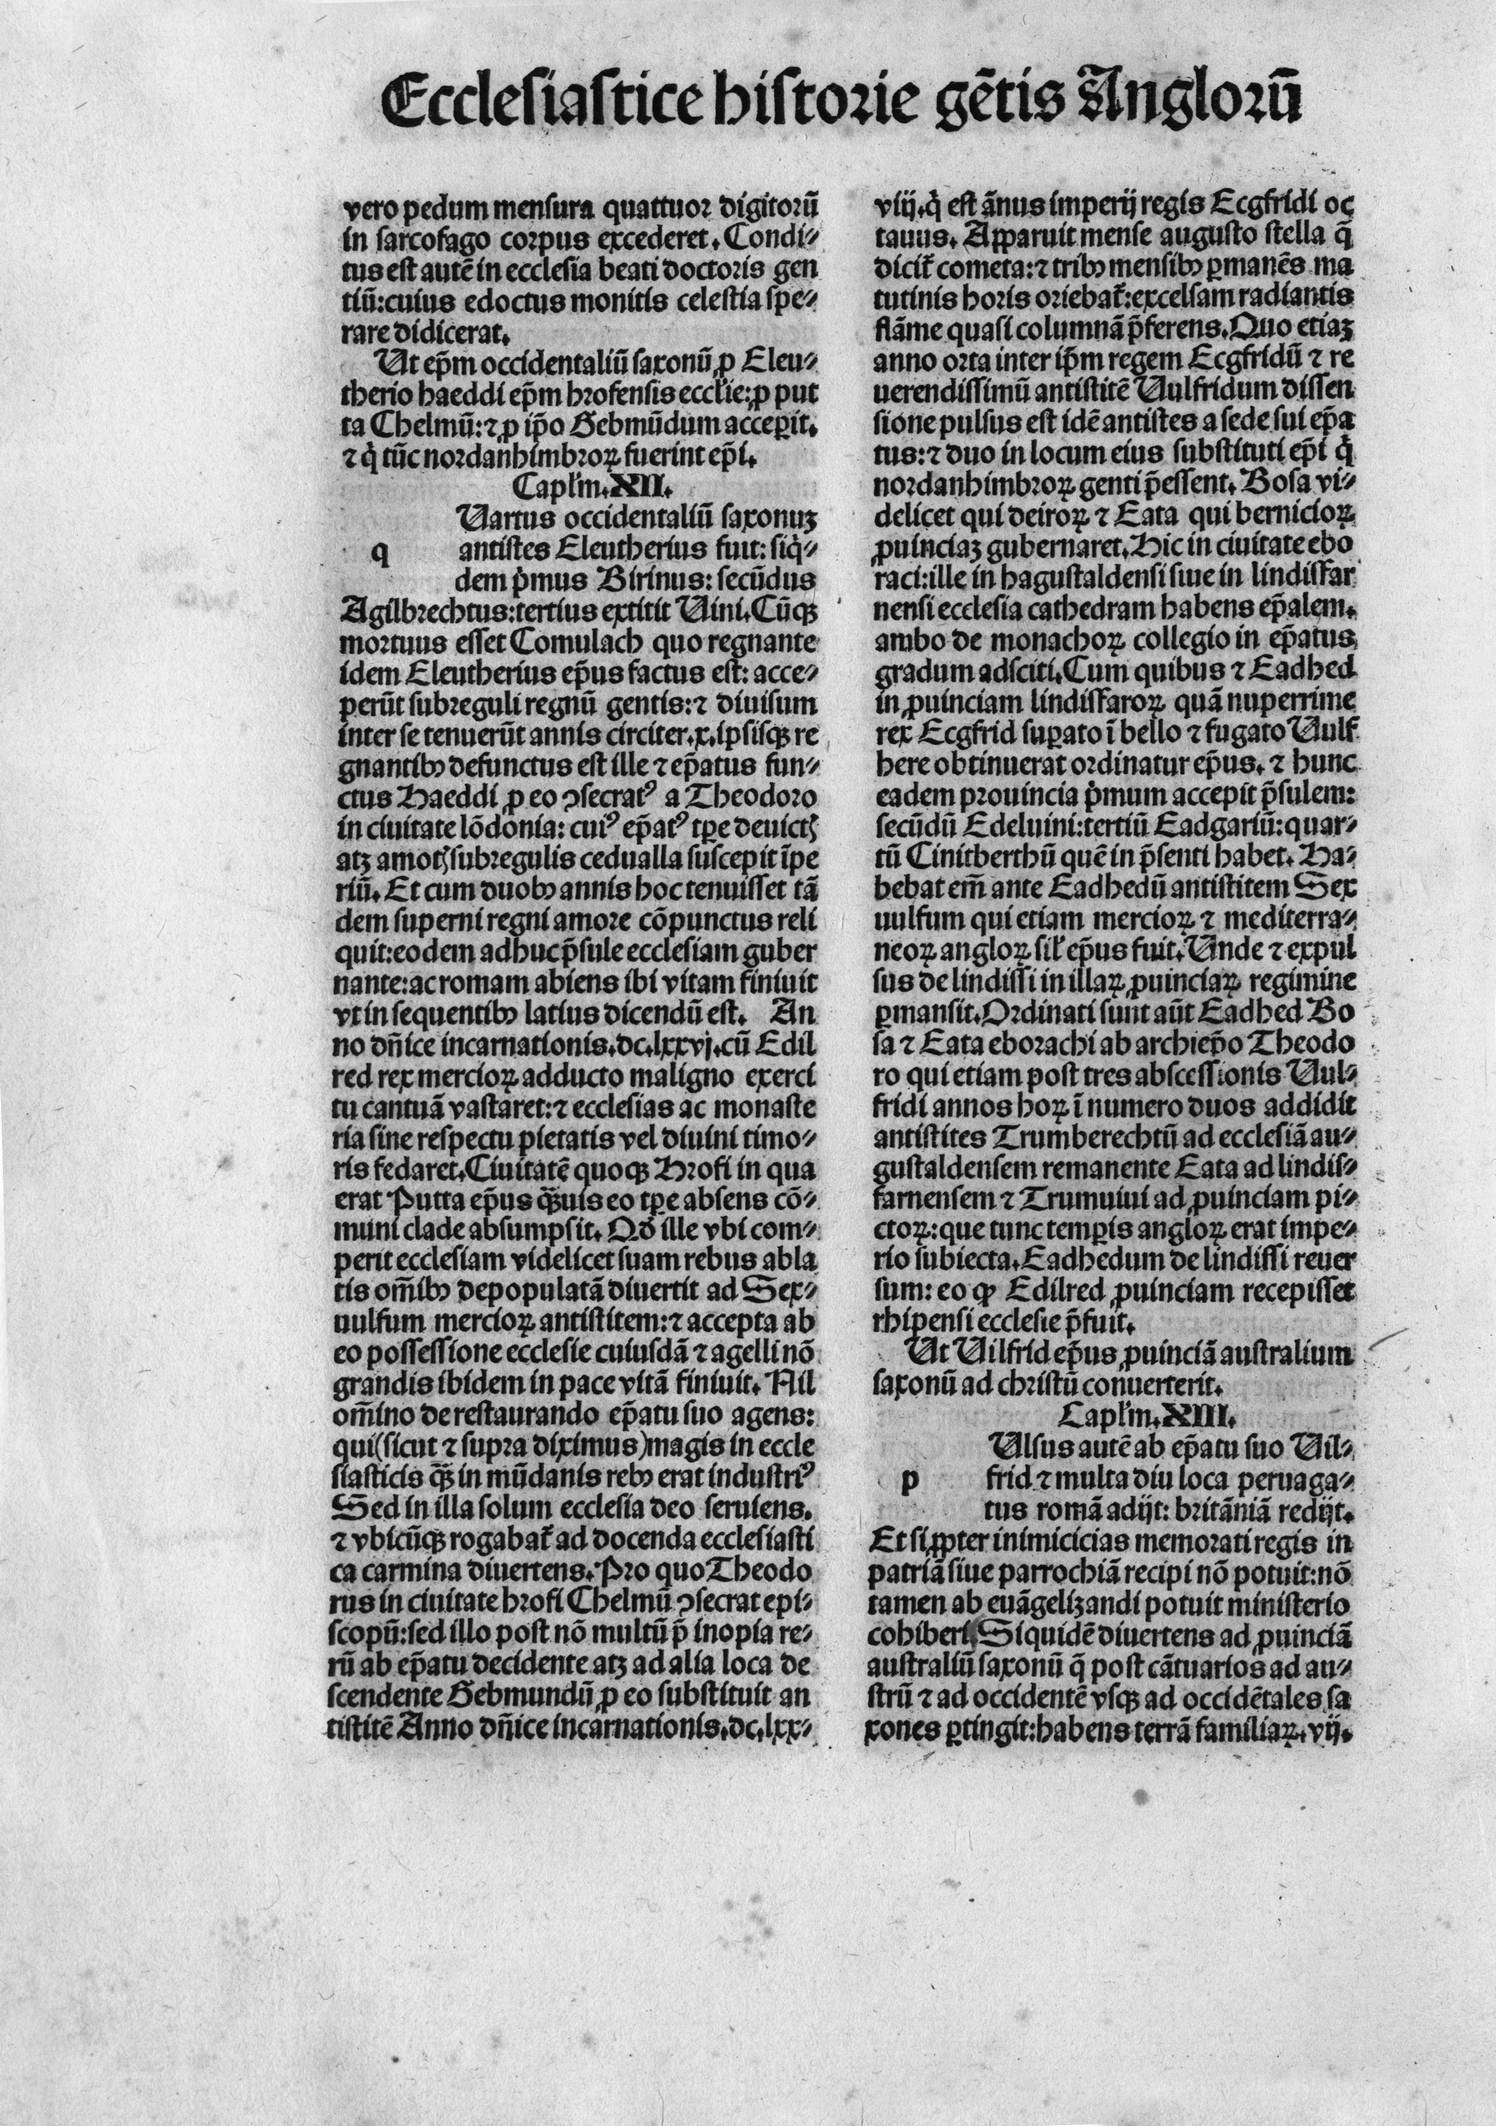 Ecclesiastice historie gẽtis Anglorũ
vero pedum mensura quattuor digitorũ
in sarcofago corpus excederet. Condi-
tus est autẽ in ecclesia beati doctoris gen
tiũ: cuius edoctus monitis celestia spe-
rare didicerat.
Ut ep̃m occidentaliũ saxonũ ꝓ Eleu-
therio haeddi ep̃m hrofensis eccl'ie: ꝓ put
ta Chelmũ: ⁊ ꝓ ip̃o Gebmũdum acceꝑit.
⁊ q̇ tũc nordanhimbroꝝ fuerint ep̃i.
Capl'm. XII.
Uartus occidentaliũ saxonuꝫ
q antistes Eleutherius fuit: siq̇-
dem pͥmus Birinus: secũdus
Agilbrechtus: tertius extitit Uini. Cũqꝫ
mortuus esset Comulach quo regnante
idem Eleutherius ep̃us factus est: acce-
perũt subreguli regnũ gentis: ⁊ diuisum
inter se tenuerũt annis circiter. x. ipsisqꝫ re
gnantibꝰ defunctus est ille ⁊ ep̃atus fun-
ctus Haeddi ꝓ eo ꝯsecratꝰ a Theodoro
in ciuitate lõdonia: cuiꝰ ep̃atꝰ tꝑe deuictꝭ
atꝫ amotꝭ subregulis cedualla suscepit ĩpe
riũ. Et cum duobꝰ annis hoc tenuisset tã
dem superni regni amore cõpunctus reli
quit: eodem adhuc p̃sule ecclesiam guber
nante: ac romam abiens ibi vitam finiuit
vt in sequentibꝰ latius dicendũ est. An
no dñice incarnationis. dc. lxxvj. cũ Edil
red rex mercioꝝ adducto maligno exerci
tu cantuã vastaret: ⁊ ecclesias ac monaste
ria sine respectu pietatis vel diuini timo-
ris fedaret. Ciuitatẽ quoqꝫ Hrofi in qua
erat Putta ep̃us qꝫ̃uis eo tꝑe absens cõ-
muni clade absumpsit. Qđ ille vbi com-
perit ecclesiam videlicet suam rebus abla
tis om̃ibꝰ depopulatã diuertit ad Sex-
uulfum mercioꝝ antistitem: ⁊ accepta ab
eo possessione ecclesie cuiusdã ⁊ agelli nõ
grandis ibidem in pace vitã finiuit. Nil
om̃ino de restaurando ep̃atu suo agens:
qui (sicut ⁊ supra diximus) magis in eccle
siasticis qꝫ̃ in mũdanis rebꝰ erat industriꝰ
Sed in illa solum ecclesia deo seruiens.
⁊ vbicũqꝫ rogabat̃ ad docenda ecclesiasti
ca carmina diuertens. Pro quo Theodo
rus in ciuitate hrofi Chelmũ ꝯsecrat epi-
scopũ: sed illo post nõ multũ p̃ inopia re-
rũ ab ep̃atu decidente atꝫ ad alia loca de
scendente Gebmundũ ꝓ eo substituit an
tistitẽ Anno dñice incarnationis. dc. lxx-
viij. q̇ est ãnus imperij regis Ecgfridi oc
tauus. Apparuit mense augusto stella q̃
dicit̃ cometa: ⁊ tribꝰ mensibꝰ ꝑmanẽs ma
tutinis horis oriebat̃: excelsam radiantis
flãme quasi columnã p̃ferens. Quo etiaꝫ
anno orta inter ip̃m regem Ecgfridũ ⁊ re
uerendissimũ antistitẽ Uulfridum dissen
sione pulsus est idẽ antistes a sede sui ep̃a
tus: ⁊ duo in locum eius substituti ep̃i q̇
nordanhimbroꝝ genti p̃essent. Bosa vi-
delicet qui deiroꝝ ⁊ Eata qui bernicioꝝ
ꝓuinciaꝫ gubernaret. Hic in ciuitate ebo
raci: ille in hagustaldensi siue in lindisfar
nensi ecclesia cathedram habens ep̃alem.
ambo de monachoꝝ collegio in ep̃atus
gradum adsciti. Cum quibus ⁊ Eadhed
in ꝓuinciam lindisfaroꝝ quã nuperrime
rex Ecgfrid suꝑato ĩ bello ⁊ fugato Uulf
here obtinuerat ordinatur ep̃us. ⁊ hunc
eadem prouincia pͥmum accepit p̃sulem:
secũdũ Edeluini: tertiũ Eadgariũ: quar-
tũ Cinitberthũ quẽ in p̃senti habet. Ha-
bebat em̃ ante Eadhedũ antistitem Sex
uulfum qui etiam mercioꝝ ⁊ mediterra-
neoꝝ angloꝝ sil' ep̃us fuit. Unde ⁊ expul
sus de lindissi in illaꝝ ꝓuinciaꝝ regimine
ꝑmansit. Ordinati sunt aũt Eadhed Bo
sa ⁊ Eata eborachi ab archiep̃o Theodo
ro qui etiam post tres abscessionis Uul-
fridi annos hoꝝ ĩ numero duos addidit
antistites Trumberechtũ ad ecclesiã au-
gustaldensem remanente Eata ad lindis-
farnensem ⁊ Trumuiui ad ꝓuinciam pi-
ctoꝝ: que tunc temꝑis angloꝝ erat impe-
rio subiecta. Eadhedum de lindissi reuer
sum: eo ꝙ Edilred ꝓuinciam recepisset
rhipensi ecclesie p̃fuit.
Ut Uilfrid ep̃us ꝓuinciã australium
saxonũ ad christũ conuerterit.
Capl'm. XIII.
Ulsus autẽ ab ep̃atu suo Uil-
p frid ⁊ multa diu loca peruaga-
tus romã adijt: britãniã redijt.
Et si ꝓpter inimicicias memorati regis in
patriã siue parrochiã recipi nõ potuit: nõ
tamen ab euãgelizandi potuit ministerio
cohiberi. Siquidẽ diuertens ad ꝓuinciã
australiũ saxonũ q̃ post cãtuarios ad au-
strũ ⁊ ad occidentẽ vsqꝫ ad occidẽtales sa
xones ꝑtingit: habens terrã familiaꝝ. vij.